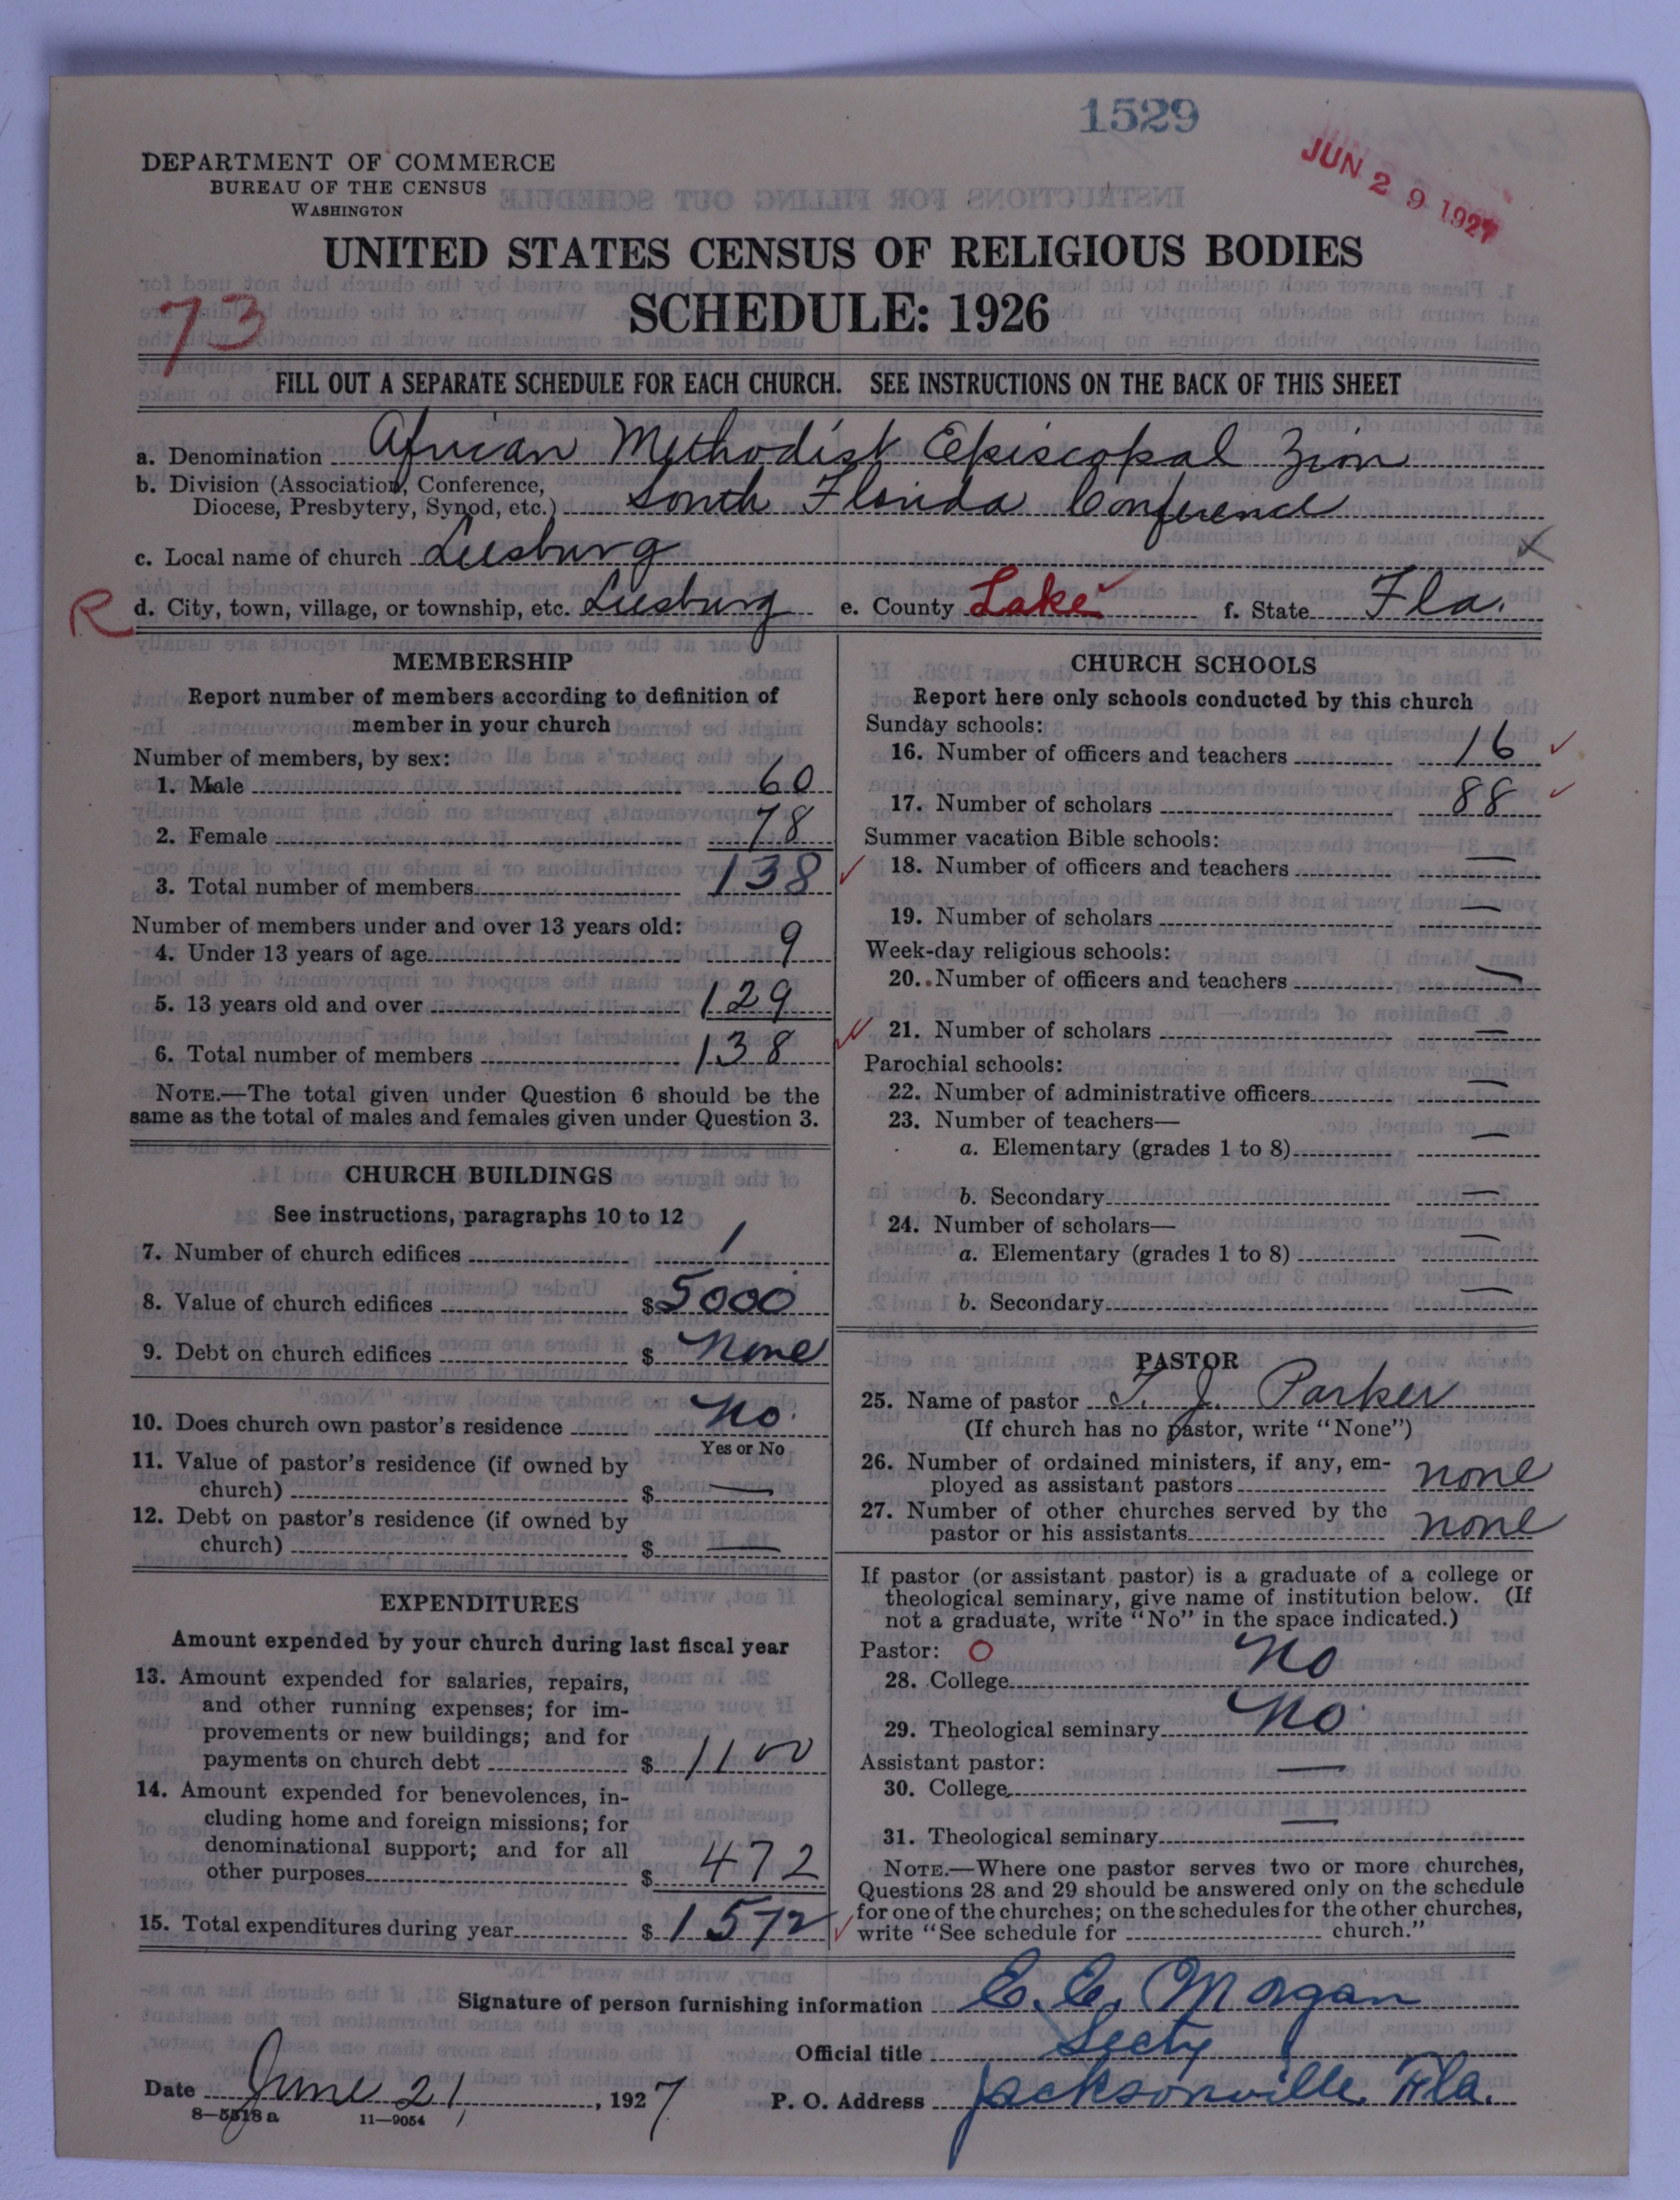 1529
JUN 29 1927
DEPARTMENT OF COMMERCE
BUREAU OF THE CENSUS
WASHINGTON
UNITED STATES CENSUS OF RELIGIOUS BODIES
SCHEDULE: 1926
73
FILL OUT A SEPARATE SCHEDULE FOR EACH CHURCH. SEE INSTRUCTIONS ON THE BACK OF THIS SHEET
a. Denomination African Methodist Episcopal Zion
b. Division (Association, Conference,
Diocese, Presbytery, Synod, etc.) South Florida Conference
c. Local name of church Leesburg
R d. City, town, village, or township, etc. Leesburg e. County Lake f. State Fla.
MEMBERSHIP
Report number of members according to definition of
member in your church
Number of members, by sex:
1. Male 60
2. Female 78
3. Total number of members 138
Number of members under and over 13 years old:
4. Under 13 years of age 9
5. 13 years old and over 129
6. Total number of members 138
NOTE.—The total given under Question 6 should be the
same as the total of males and females given under Question 3.
CHURCH BUILDINGS
See instructions, paragraphs 10 to 12
7. Number of church edifices 1
8. Value of church edifices $5000
9. Debt on church edifices $ None
10. Does church own pastor's residence No.
Yes or No
11. Value of pastor's residence (if owned by
church) $ —
12. Debt on pastor's residence (if owned by
church) $ —
EXPENDITURES
Amount expended by your church during last fiscal year
13. Amount expended for salaries, repairs,
and other running expenses; for im-
provements or new buildings; and for
payments on church debt $ 1100
14. Amount expended for benevolences, in-
cluding home and foreign missions; for
denominational support; and for all
other purposes $ 472
15. Total expenditures during year $ 1572
CHURCH SCHOOLS
Report here only schools conducted by this church
Sunday schools:
16. Number of officers and teachers 16
17. Number of scholars 88
Summer vacation Bible schools:
18. Number of officers and teachers —
19. Number of scholars —
Week-day religious schools:
20. Number of officers and teachers —
21. Number of scholars —
Parochial schools:
22. Number of administrative officers —
23. Number of teachers—
a. Elementary (grades 1 to 8) —
b. Secondary —
24. Number of scholars—
a. Elementary (grades 1 to 8) —
b. Secondary —
PASTOR
25. Name of pastor T. J. Parker
(If church has no pastor, write "None")
26. Number of ordained ministers, if any, em-
ployed as assistant pastors none
27. Number of other churches served by the
pastor or his assistants none
If pastor (or assistant pastor) is a graduate of a college or
theological seminary, give name of institution below. (If
not a graduate, write "No" in the space indicated.)
Pastor: O
28. College No
29. Theological seminary No
Assistant pastor:
30. College —
31. Theological seminary —
NOTE.—Where one pastor serves two or more churches,
Questions 28 and 29 should be answered only on the schedule
for one of the churches; on the schedules for the other churches,
write "See schedule for church."
Signature of person furnishing information E. E. Morgan
Official title Secty
Date June 21, 1927 P. O. Address Jacksonville Fla.
8—5518a 11—9054